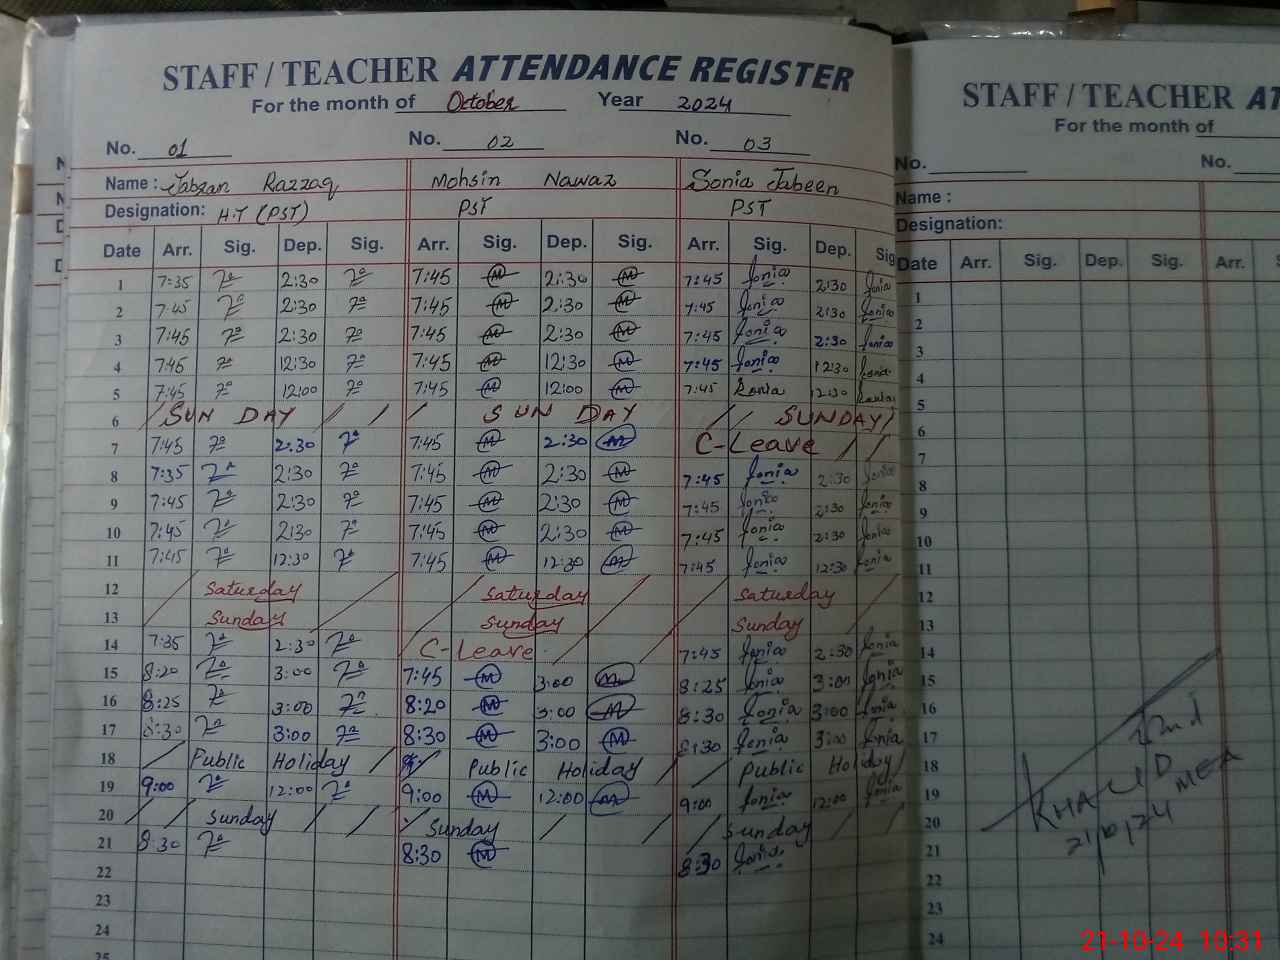 STAFF / TEACHER ATTENDANCE REGISTER
For the month of October Year 2024
No. 01 No. 02 No. 03
Name : Jabran Razzaq Mohsin Nawaz Sonia Jabeen
Designation: H.T (PST) PST PST
Date Arr. Sig. Dep. Sig. Arr. Sig. Dep. Sig. Arr. Sig. Dep. Sig
1 7:35 2:30 7:45 M 2:30 M 7:45 Sonia 2:30 Sonia
2 7:45 2:30 7:45 M 2:30 M 7:45 Sonia 2:30 Sonia
3 7:45 2:30 7:45 M 2:30 M 7:45 Sonia 2:30 Sonia
4 7:45 12:30 7:45 M 12:30 M 7:45 Sonia 12:30 Sonia
5 7:45 12:00 7:45 M 12:00 M 7:45 Sonia 12:30 Sonia
6 SUN DAY SUN DAY SUNDAY
7 7:45 2:30 7:45 M 2:30 M C-Leave
8 7:35 2:30 7:45 M 2:30 M 7:45 Sonia 2:30 Sonia
9 7:45 2:30 7:45 M 2:30 M 7:45 Sonia 2:30 Sonia
10 7:45 2:30 7:45 M 2:30 M 7:45 Sonia 2:30 Sonia
11 7:45 12:30 7:45 M 12:30 M 7:45 Sonia 12:30 Sonia
12 Saturday Saturday Saturday
13 Sunday Sunday Sunday
14 7:35 2:30 C-Leave 7:45 Sonia 2:30 Sonia
15 8:20 3:00 7:45 M 3:00 M 8:25 Sonia 3:00 Sonia
16 8:25 3:00 8:20 M 3:00 M 8:30 Sonia 3:00 Sonia
17 8:30 3:00 8:30 M 3:00 M 8:30 Sonia 3:00 Sonia
18 Public Holiday Public Holiday Public Holiday
19 9:00 12:00 9:00 M 12:00 M 9:00 Sonia 12:00 Sonia
20 Sunday Sunday Sunday
21 8:30 8:30 M 8:30 Sonia
22
23
24
25
STAFF / TEACHER AT
For the month of
No. No.
Name :
Designation:
Date Arr. Sig. Dep. Sig. Arr. S
1
2
3
4
5
6
7
8
9
10
11
12
13
14
15
16
17
18
19
20
21
22
23
24
KHALID
MEA
21/10/24
21-10-24 10:31